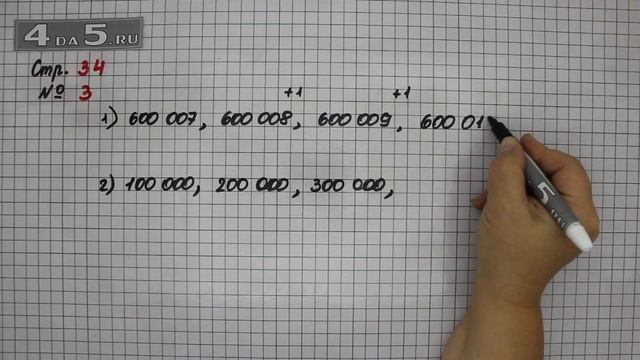 4 DA 5.RU
Стр. 34
№ 3
+1 +1
1) 600 007, 600 008, 600 009, 600 01
2) 100 000, 200 000, 300 000,